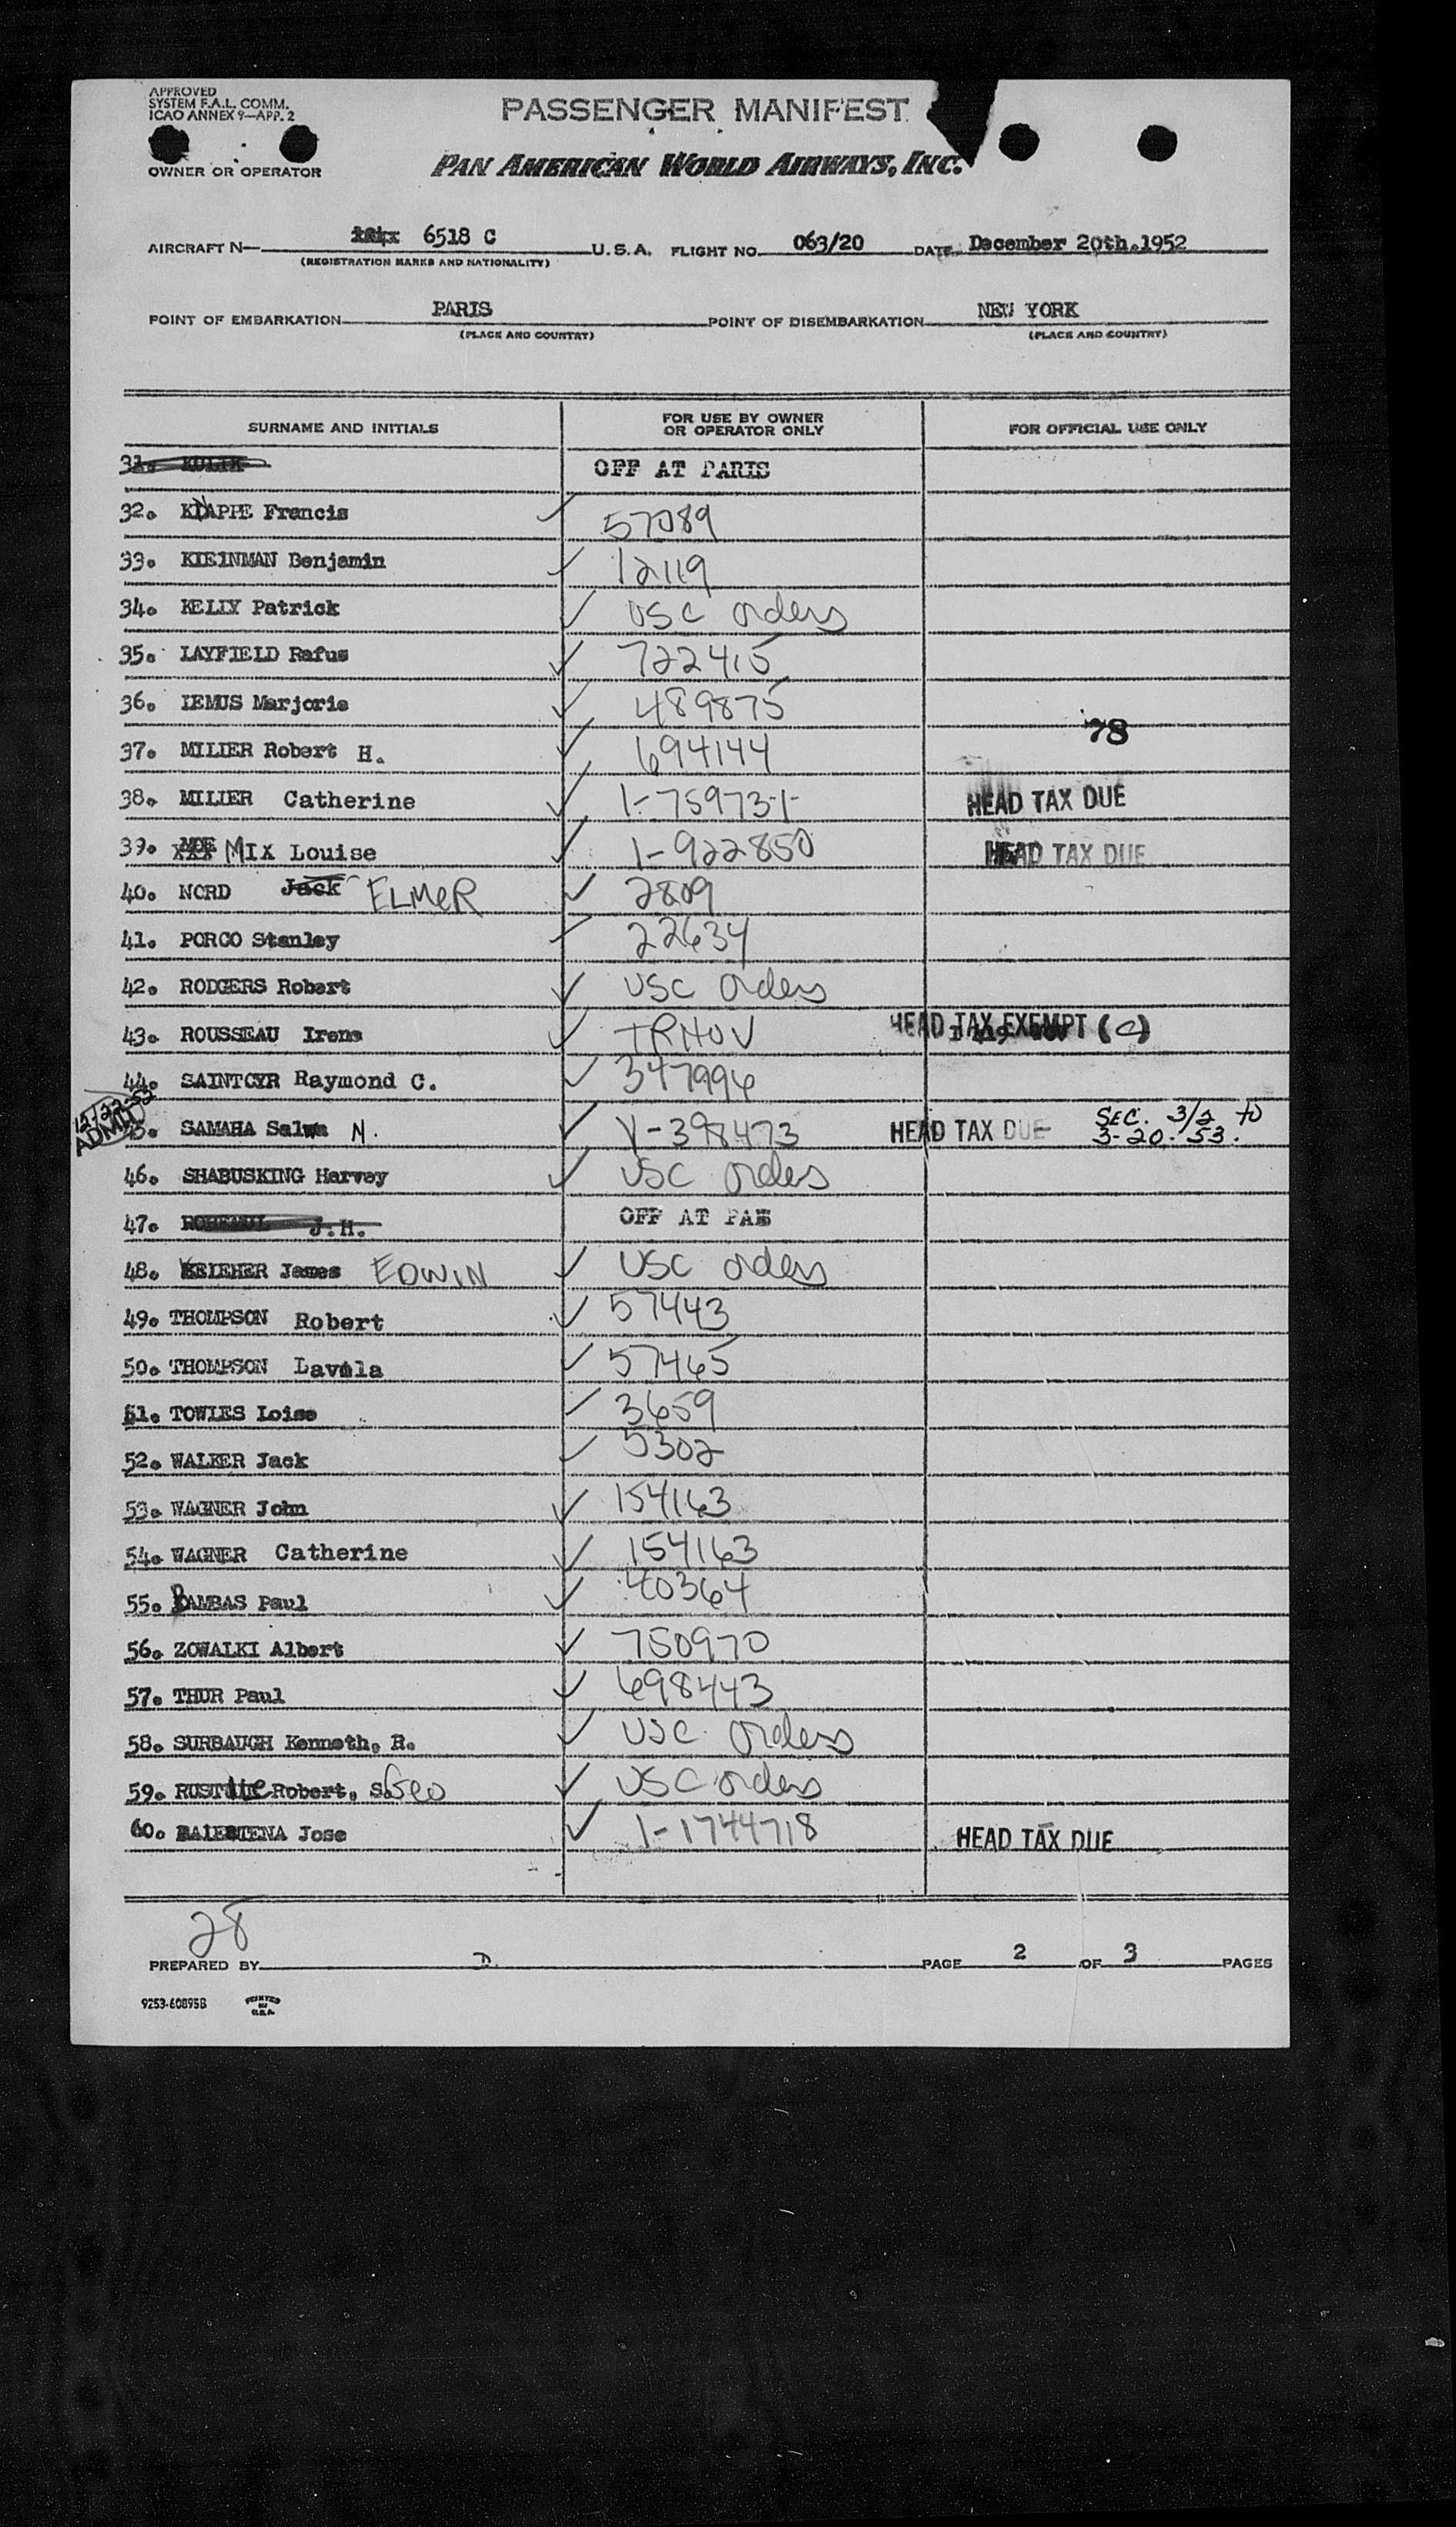 APPROVED
SYSTEM F.A.L. COMM.
ICAO ANNEX 9—APP. 2
PASSENGER MANIFEST
OWNER OR OPERATOR
PAN AMERICAN WORLD AIRWAYS, INC.
AIRCRAFT N— 6518 C U.S.A. FLIGHT NO. 063/20 DATE December 20th.1952
(REGISTRATION MARKS AND NATIONALITY)
POINT OF EMBARKATION PARIS POINT OF DISEMBARKATION NEW YORK
(PLACE AND COUNTRY) (PLACE AND COUNTRY)
SURNAME AND INITIALS FOR USE BY OWNER OR OPERATOR ONLY FOR OFFICIAL USE ONLY
31. KULIK OFF AT PARIS
32. KLAPPE Francis 57089
33. KLEINMAN Benjamin 12119
34. KELLY Patrick USC orders
35. LAYFIELD Rafus 722415
36. LEMUS Marjorie 489875
78
37. MILLER Robert H. 694144
38. MILLER Catherine 1-759731- HEAD TAX DUE
39. MIX Louise 1-922850 HEAD TAX DUE
40. NORD Jack ELMER 2809
41. PORCO Stanley 22634
42. RODGERS Robert USC orders
43. ROUSSEAU Irene HEAD TAX EXEMPT (C)
44. SAINTCYR Raymond C. 347996
12-22-52
ADMIT
45. SAMAHA Salwa N. V-398473 HEAD TAX DUE SEC. 3/2 to
3-20-53.
46. SHABUSKING Harvey USC orders
47. J.H. OFF AT PAR
48. KELEHER James EDWIN USC orders
49. THOMPSON Robert 57443
50. THOMPSON Lavola 57465
51. TOWLES Loise 3659
52. WALKER Jack 5302
53. WAGNER John 154163
54. WAGNER Catherine 154163
55. BAMBAS Paul 40364
56. ZOWALKI Albert 750970
57. THUR Paul 698443
58. SURBAUGH Kenneth, R. USC orders
59. Robert, S. Geo USC orders
60. Jose 1-1744718 HEAD TAX DUE
28
PREPARED BY D. PAGE 2 OF 3 PAGES
9253-60895B PRINTED
IN
U.S.A.